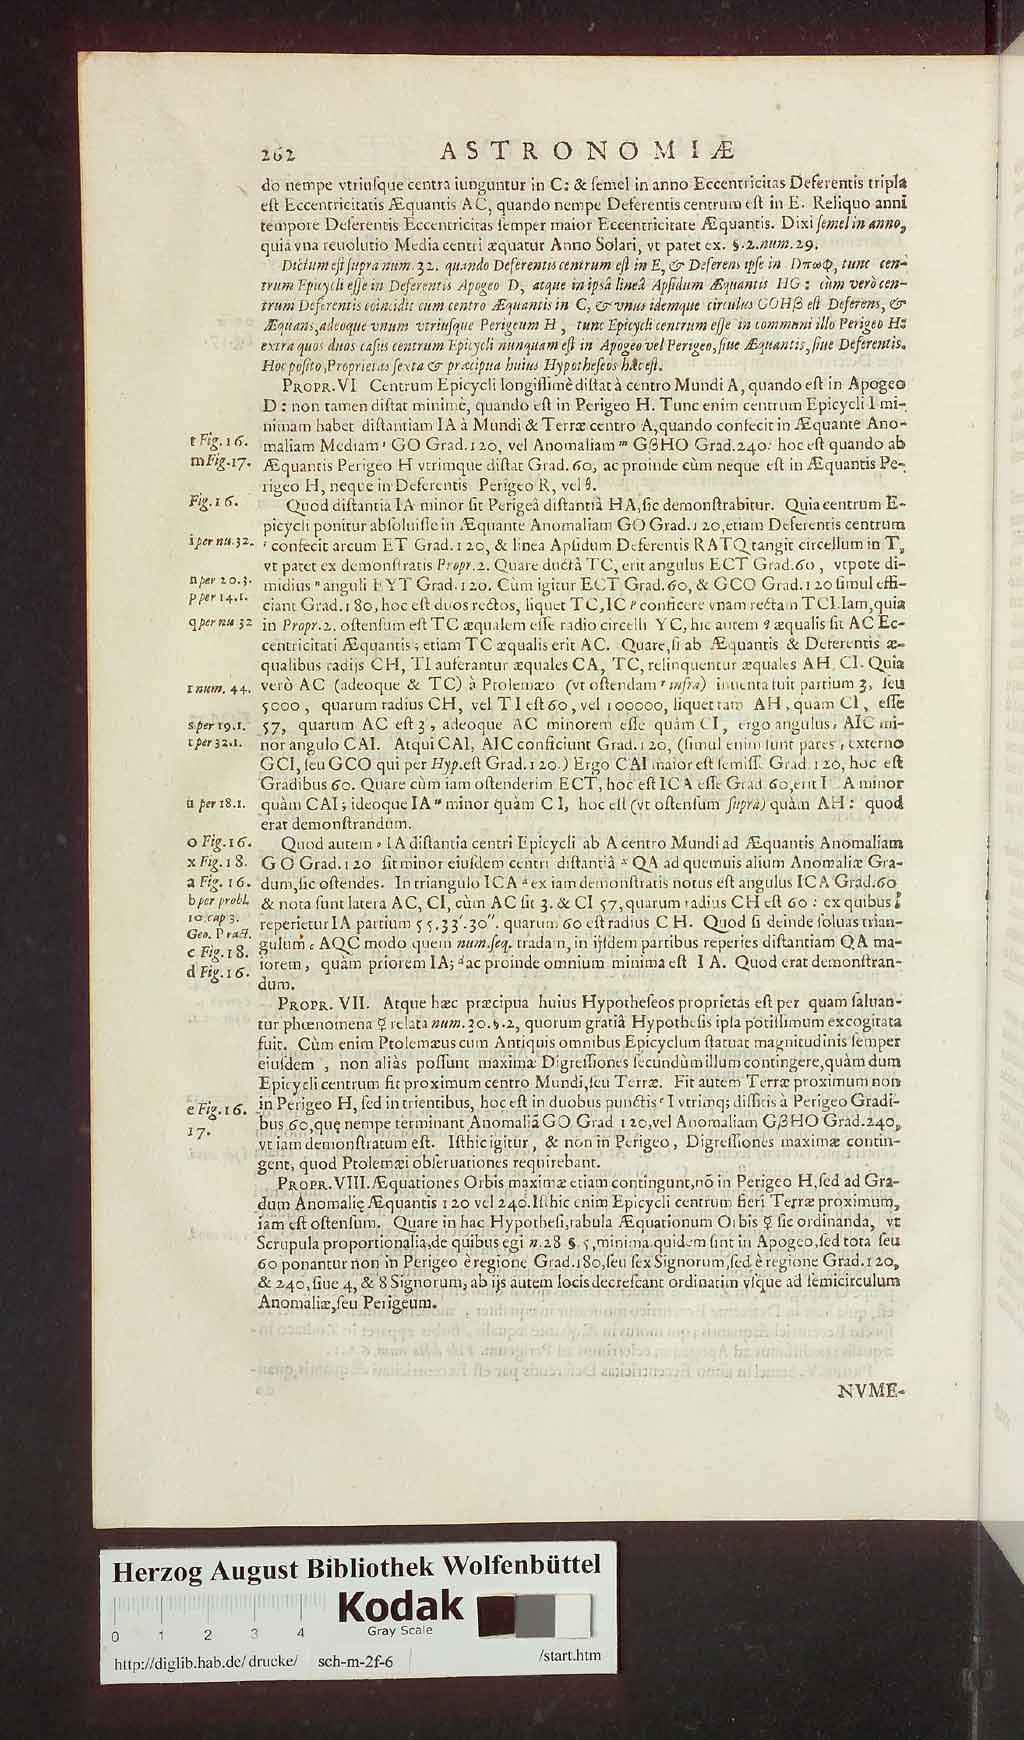 262 ASTRONOMIÆ
do nempe vtriusque centra iunguntur in C: & semel in anno Eccentricitas Deferentis tripla
est Eccentricitatis Æquantis AC, quando nempe Deferentis centrum est in E. Reliquo anni
tempore Deferentis Eccentricitas semper maior Eccentricitate Æquantis. Dixi semel in anno,
quia vna reuolutio Media centri æquatur Anno Solari, vt patet ex. §.2.num.29.
Dictum est supra num. 32. quando Deferentis centrum est in E, & Deferens ipse in DπωΦ, tunc cen-
trum Epicycli esse in Deferentis Apogeo D, atque in ipsâ lineâ Apsidum Æquantis HG: cùm verò cen-
trum Deferentis coincidit cum centro Æquantis in C, & vnus idemque circulus GOHβ est Deferens, &
Æquans, adeoque vnum vtriusque Perigeum H, tunc Epicycli centrum esse in communi illo Perigeo H:
extra quos duos casus centrum Epicycli nunquam est in Apogeo vel Perigeo, siue Æquantis, siue Deferentis.
Hoc posito, Proprietas sexta & præcipua huius Hypotheseos hæc est.
PROPR. VI Centrum Epicycli longissimè distat à centro Mundi A, quando est in Apogeo
D: non tamen distat minimè, quando est in Perigeo H. Tunc enim centrum Epicycli I mi-
nimam habet distantiam IA à Mundi & Terræ centro A, quando confecit in Æquante Ano-
t Fig. 16. maliam Mediam GO Grad. 120, vel Anomaliam m GβHO Grad. 240. hoc est quando ab
m Fig. 17. Æquantis Perigeo H vtrimque distat Grad. 60, ac proinde cùm neque est in Æquantis Pe-
rigeo H, neque in Deferentis Perigeo R, vel θ.
Fig. 16. Quod distantia IA minor sit Perigeâ distantiâ HA, sic demonstrabitur. Quia centrum E-
picycli ponitur absoluisse in Æquante Anomaliam GO Grad. 120, etiam Deferentis centrum
i per nu. 32. i confecit arcum ET Grad. 120, & linea Apsidum Deferentis RATQ tangit circellum in T,
vt patet ex demonstratis Propr. 2. Quare ductâ TC, erit angulus ECT Grad. 60, vtpote di-
n per 20.3. midius n anguli EYT Grad. 120. Cùm igitur ECT Grad. 60, & GCO Grad. 120 simul effi-
p per 14.1. ciant Grad. 180, hoc est duos rectos, liquet TC, IC p conficere vnam rectam TCI. Iam, quia
q per nu 32 in Propr. 2. ostensum est TC æqualem esse radio circelli YC, hic autem q æqualis sit AC Ec-
centricitati Æquantis; etiam TC æqualis erit AC. Quare, si ab Æquantis & Deferentis æ-
qualibus radijs CH, TI auferantur æquales CA, TC, relinquentur æquales AH, CI. Quia
r num. 44. verò AC (adeoque & TC) à Ptolemæo (vt ostendam r infra) inuenta fuit partium 3, seu
5000, quarum radius CH, vel TI est 60, vel 100000, liquet tam AH, quam CI, esse
s per 19.1. 57, quarum AC est 3, adeoque AC minorem esse quàm CI, ergo angulus s AIC mi-
t per 32.1. nor angulo CAI. Atqui CAI, AIC conficiunt Grad. 120, (simul enim sunt pares t externo
GCI, seu GCO qui per Hyp. est Grad. 120.) Ergo CAI maior est semiss. Grad. 120, hoc est
Gradibus 60. Quare cùm iam ostenderim ECT, hoc est ICA esse Grad 60, erit I A minor
u per 18.1. quàm CAI; ideoque IA u minor quàm CI, hoc est (vt ostensum supra) quàm AH: quod
erat demonstrandum.
o Fig. 16. Quod autem o IA distantia centri Epicycli ab A centro Mundi ad Æquantis Anomaliam
x Fig. 18. GO Grad. 120 sit minor eiusdem centri distantiâ x QA ad quemuis alium Anomaliæ Gra-
a Fig. 16. dum, sic ostendes. In triangulo ICA a ex iam demonstratis notus est angulus ICA Grad. 60
b per probl. & nota sunt latera AC, CI, cùm AC sit 3. & CI 57, quarum radius CH est 60: ex quibus b
10. cap 3. reperietur IA partium 55.33'.30''. quarum 60 est radius CH. Quod si deinde soluas trian-
Geo. Pract.
c Fig. 18. gulum c AQC modo quem num. seq. tradam, in ijsdem partibus reperies distantiam QA ma-
d Fig. 16. iorem, quàm priorem IA; d ac proinde omnium minima est IA. Quod erat demonstran-
dum.
PROPR. VII. Atque hæc præcipua huius Hypotheseos proprietas est per quam saluan-
tur phœnomena ☿ relata num. 30. §.2, quorum gratiâ Hypothesis ipsa potissimum excogitata
fuit. Cùm enim Ptolemæus cum Antiquis omnibus Epicyclum statuat magnitudinis semper
eiusdem, non aliàs possunt maximæ Digressiones secundùm illum contingere, quàm dum
Epicycli centrum fit proximum centro Mundi, seu Terræ. Fit autem Terræ proximum non
e Fig. 16. in Perigeo H, sed in trientibus, hoc est in duobus punctis e I vtrimq; dissitis à Perigeo Gradi-
17. bus 60, quę nempe terminant Anomaliā GO Grad 120, vel Anomaliam GβHO Grad. 240,
vt iam demonstratum est. Isthic igitur, & non in Perigeo, Digressiones maximæ contin-
gent, quod Ptolemæi obseruationes requirebant.
PROPR. VIII. Æquationes Orbis maximæ etiam contingunt, nō in Perigeo H, sed ad Gra-
dum Anomalię Æquantis 120 vel 240. Isthic enim Epicycli centrum fieri Terræ proximum,
iam est ostensum. Quare in hac Hypothesi, tabula Æquationum Orbis ☿ sic ordinanda, vt
Scrupula proportionalia, de quibus egi n. 28 §. 5, minima quidem sint in Apogeo, sed tota seu
60 ponantur non in Perigeo è regione Grad. 180, seu sex Signorum, sed è regione Grad. 120,
& 240, siue 4, & 8 Signorum, ab ijs autem locis decrescant ordinatim vsque ad semicirculum
Anomaliæ, seu Perigeum.
NVME-
Herzog August Bibliothek Wolfenbüttel
Kodak
Gray Scale
0 1 2 3 4
http://diglib.hab.de/drucke/ sch-m-2f-6 /start.htm